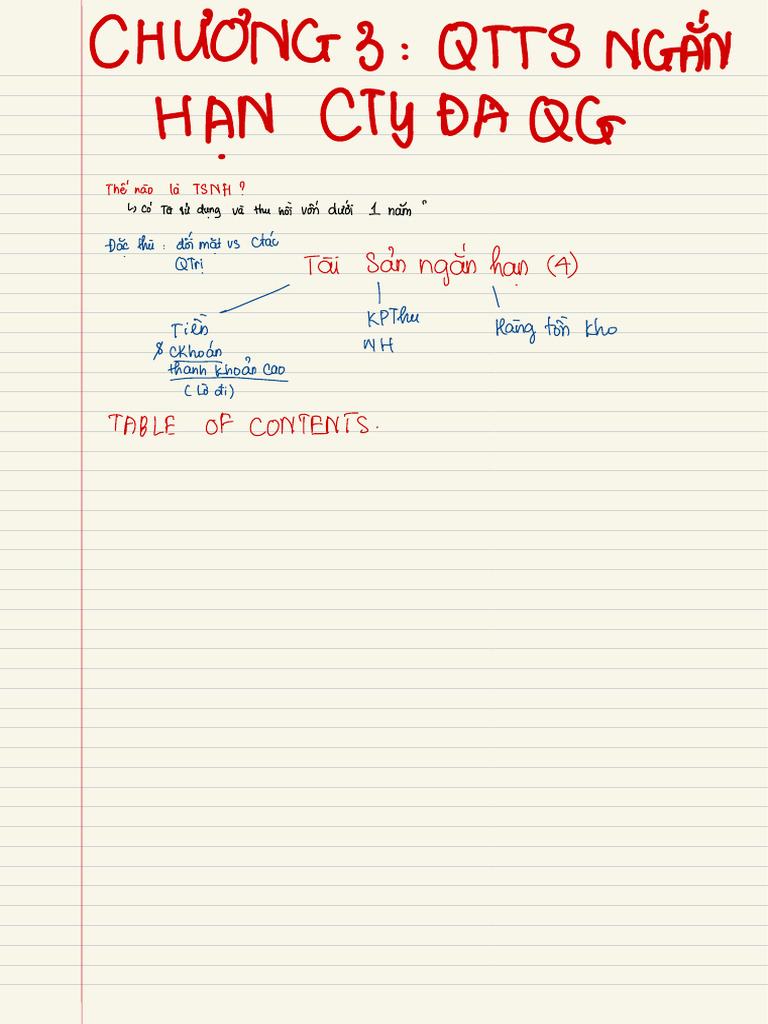 CHƯƠNG 3: QTTS NGẮN
HẠN CTY ĐA QG
Thế nào là TSNH?
↳ có TG sử dụng và thu hồi vốn dưới 1 năm "
Đặc thù: đối mặt vs Ctác
QTrị
Tài sản ngắn hạn (4)
Tiền
$ CKhoán
thanh khoản cao
(
đi)
KPThu
NH
Hàng tồn kho
TABLE OF CONTENTS.